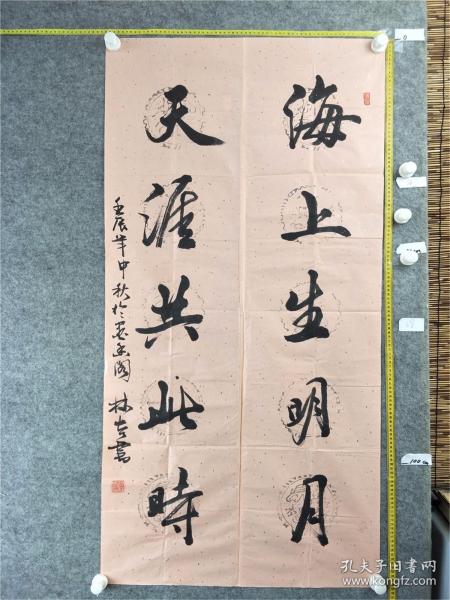 海上生明月
天涯共此時
壬辰年中秋於墨遠閣 林吉書
孔夫子旧书网
www.kongfz.com